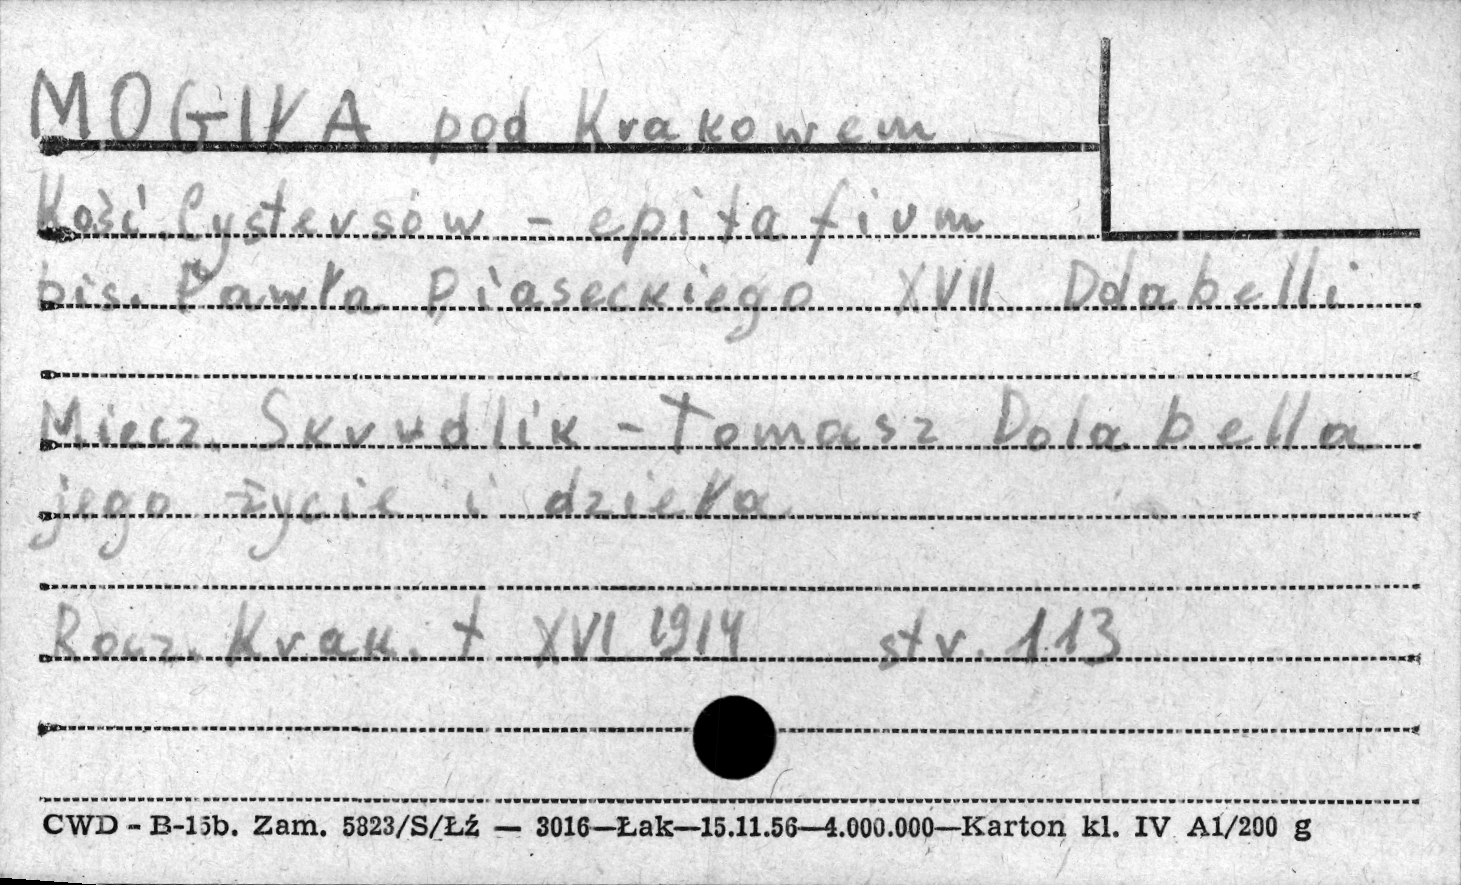 MOGIŁA pod Krakowem
Kość. Cystersów - epitafium
bis. Pawła Piaseckiego XVII Dolabelli
Miecz. Skrudlik - Tomasz Dolabella
jego życie i dzieła
Rocz. Krak. t XVI 1914 str. 113
CWD - B-15b. Zam. 5823/S/Łź — 3016—Łak—15.11.56—4.000.000—Karton kl. IV A1/200 g